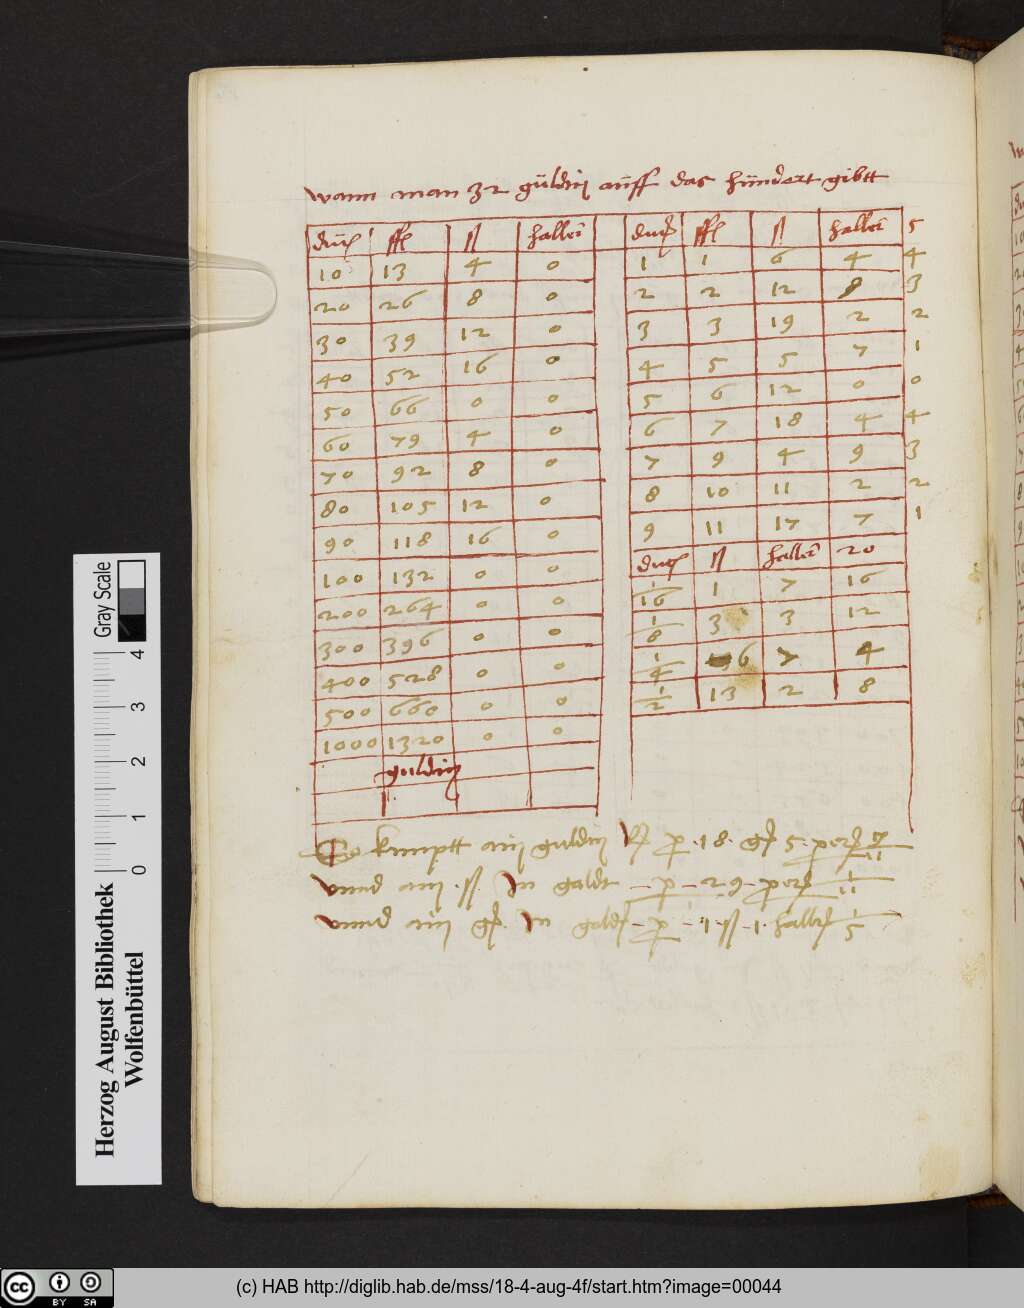 wann man 32 güldin auff das hündert gibtt
duc ffl ß haller
10 13 4 0
20 26 8 0
30 39 12 0
40 52 16 0
50 66 0 0
60 79 4 0
70 92 8 0
80 105 12 0
90 118 16 0
100 132 0 0
200 264 0 0
300 396 0 0
400 528 0 0
500 660 0 0
1000 1320 0 0
guldin
duc ffl ß haller 5
1 1 6 4 4
2 2 12 8 3
3 3 19 2 2
4 5 5 7 1
5 6 12 0 0
6 7 18 4 4
7 9 4 9 3
8 10 11 2 2
9 11 17 7 1
duc ß haller 20
1/16 1 7 16
1/8 3 3 12
1/4 6 7 4
1/2 13 2 8
So kumptt ain guldin p 18 gß 5 per 7/11
vnnd ain ß In goldt p 29 per 1/11
vnnd ain gß In gold p 1 ß 1 haller 1/5
Herzog August Bibliothek
Wolfenbüttel
Gray Scale
0 1 2 3 4
cc BY SA
(c) HAB http://diglib.hab.de/mss/18-4-aug-4f/start.htm?image=00044